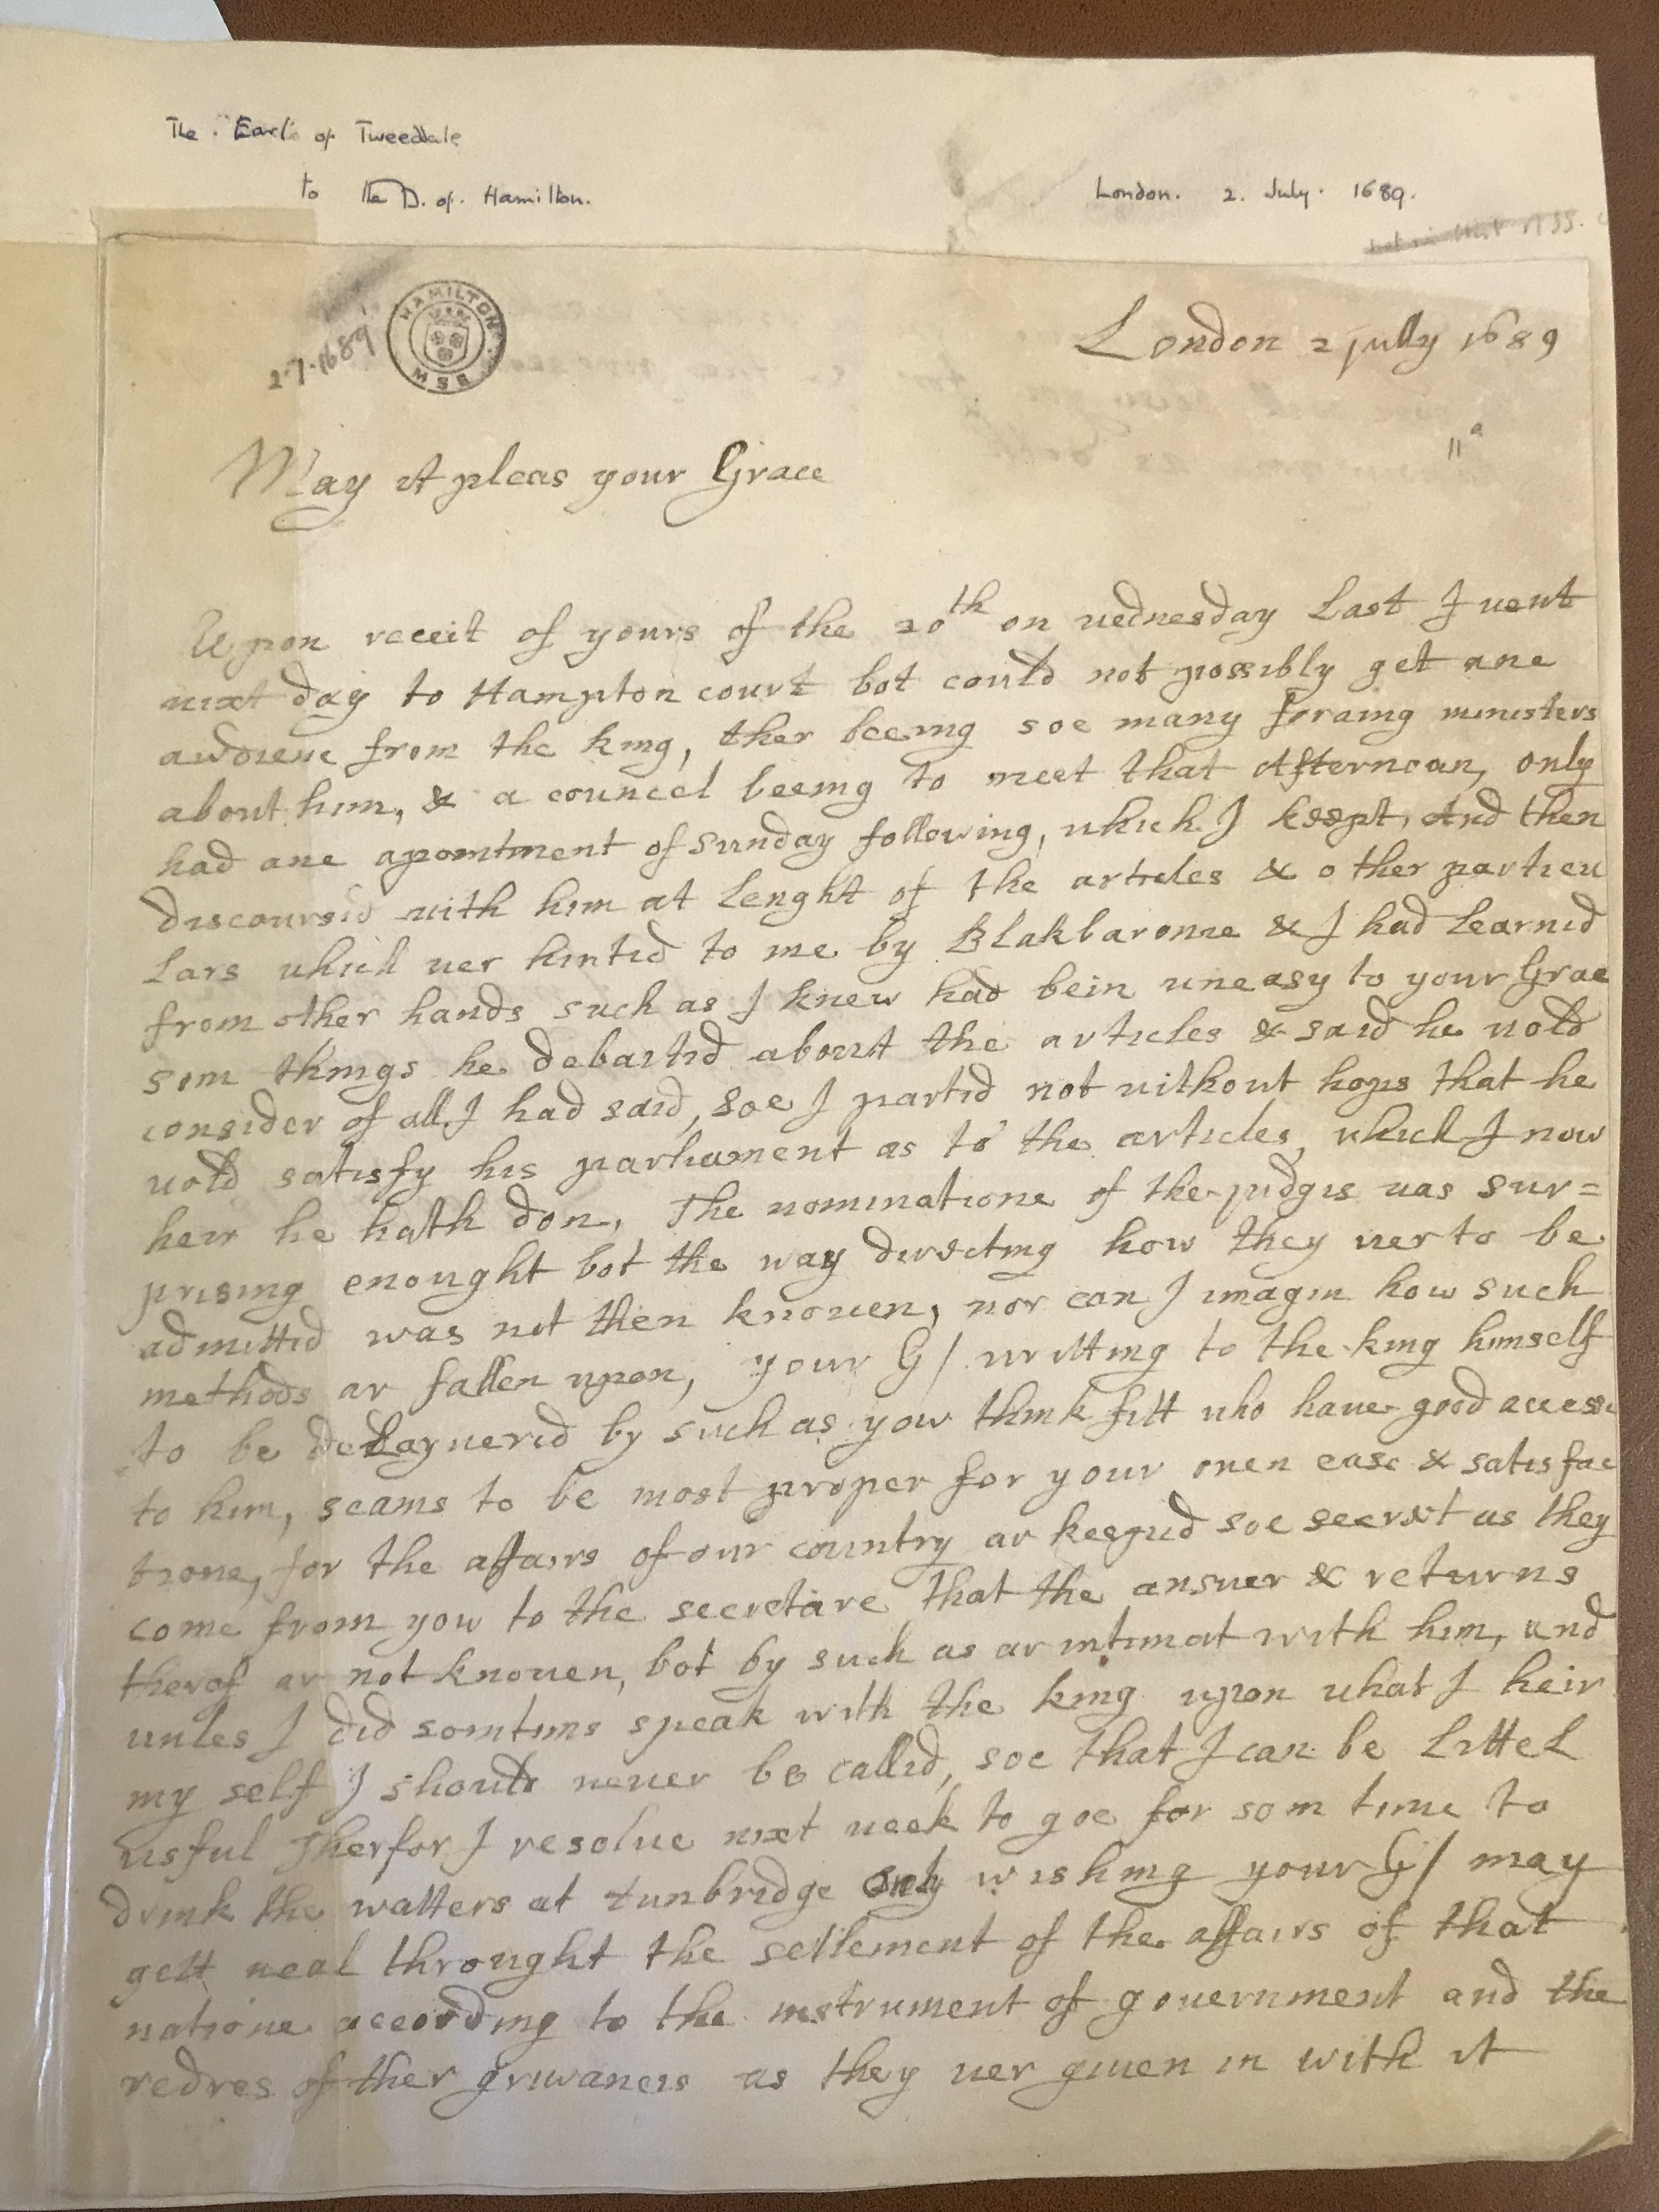 The Earl of Tweeddale
to the D. of. Hamilton.
London. 2. July. 1689.
2.7.1689
HAMILTON MSS
London 2 jully 1689
11a
May it pleas your Grace
Upon receit of yours of the 20th on uednesday Last I uent
nixt day to Hampton court bot could not possibly get ane
audiene from the king, ther beeing soe many foraing ministers
about him, & a councel beeing to meet that Afternoan, only
had ane apointment of sunday following, uhich I keept, And then
discoursid uith him at Lenght of the articles & other particu
Lars uhich uer hintid to me by Blakbaronie & I had Learnid
from other hands such as I knew had bein uneasy to your Grace
som things he debaitid about the articles & said he uold
consider of all I had said, soe I partid not uithout hops that he
uold satisfy his parliament as to the articles, uhich I now
heir he hath don, The nominatione of the judgis uas sur=
prising enought bot the way directing how they uer to be
admittid was not then knouen, nor can I imagin how such
methods ar fallen upon, your G/ uritting to the king himself
to be delayuerid by such as yow think fitt uho haue good access
to him, seams to be most proper for your ouen ease & satisfac
tione, for the affairs of our country ar keepid soe secret as they
come from yow to the secretare that the ansuer & returns
therof ar not knouen, bot by such as ar intimat with him, and
unles I did somtims speak with the king upon uhat I heir
my self I should neuer be callid, soe that I can be Littel
usful Therfor I resolue nixt ueek to goe for som time to
drink the watters at tunbridge only wishing your G/ may
gett ueal throught the setlement of the affairs of that
natione according to the instrument of gouernment and the
redres of ther griuancis as they uer giuen in with it